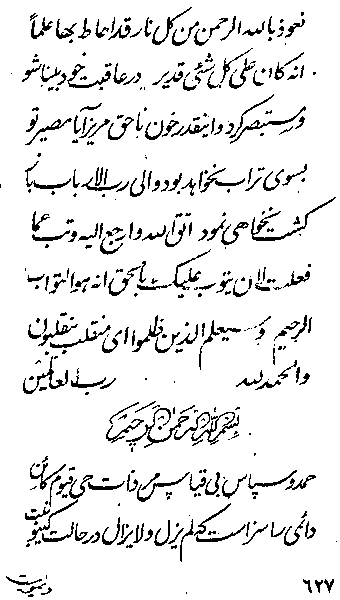 نعوذ بالله الرحمن من كل نار قد احاط بها علماً
انه كان على كل شئ قدير در عاقبت خود بينا شو
و مستبصر گرد و اينقدر خون ناحق مريز آيا مصير تو
بسوى تراب نخواهد بود والى رب الارباب باز
گشت نخواهى نمود اتق الله وارجع اليه وتب عما
فعلت لان يتوب عليك بالحق انه هو التواب
الرحيم وسيعلم الذين ظلموا اى منقلب ينقلبون
والحمد لله رب العالمين
بسم الله الرحمن الرحيم
حمد و سپاس بى قياس مر ذات حى قيوم كائن
دائمى را سزاست كه لم يزل ولا يزال در حالت كينونت
٦٢٧